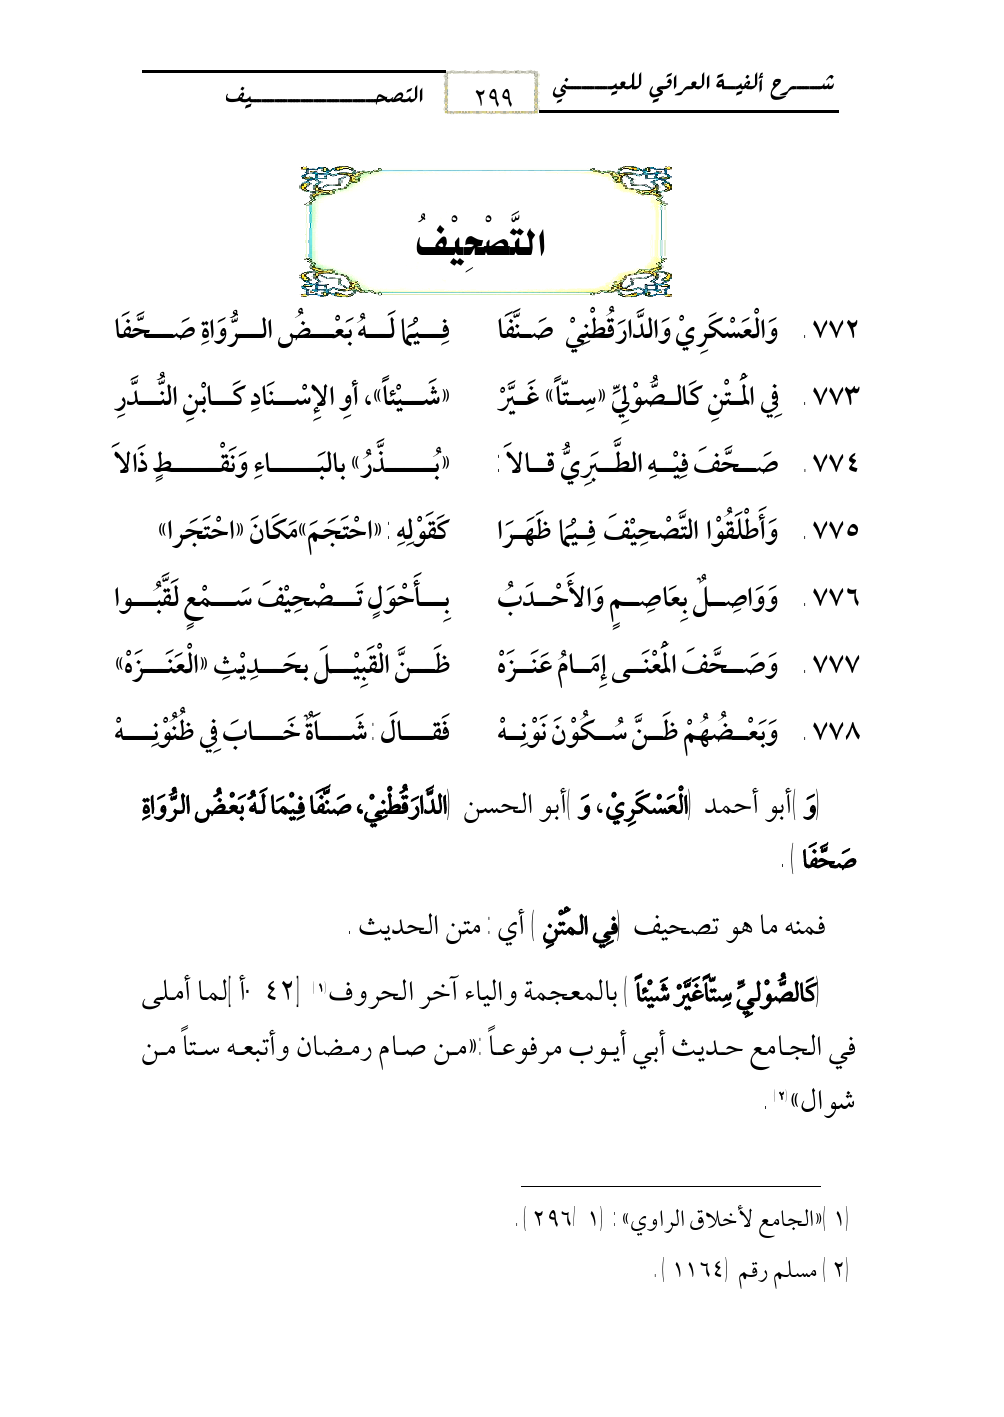 شرح ألفية العراقي للعيني ٢٩٩ التصحيف
التَّصْحِيْفُ
٧٧٢. وَالْعَسْكَرِيْ وَالدَّارَقُطْنِيْ صَنَّفَا فِيْمَا لَهُ بَعْضُ الرُّوَاةِ صَحَّفَا
٧٧٣. فِي الْمَتْنِ كَالصُّوْلِيِّ «سِتّاً» غَيَّرْ «شَيْئاً»، أوِ الإِسْنَادِ كَابْنِ النُّدَّرِ
٧٧٤. صَحَّفَ فِيْهِ الطَّبَرِيُّ قالاَ: «بُذَّرُ» بالبَاءِ وَنَقْطٍ ذَالاَ
٧٧٥. وَأَطْلَقُوْا التَّصْحِيْفَ فِيْمَا ظَهَرَا كَقَوْلِهِ: «احْتَجَمَ» مَكَانَ «احْتَجَرا»
٧٧٦. وَوَاصِلٌ بِعَاصِمٍ وَالأَحْدَبُ بِأَحْوَلٍ تَصْحِيْفَ سَمْعٍ لَقَّبُوا
٧٧٧. وَصَحَّفَ الْمَعْنَى إِمَامُ عَنَزَهْ ظَنَّ الْقَبِيْلَ بحَدِيْثِ «الْعَنَزَهْ»
٧٧٨. وَبَعْضُهُمْ ظَنَّ سُكُوْنَ نَوْنِهْ فَقالَ: شَاَةٌ خَابَ فِي ظُنُوْنِهْ
(وَ) أبو أحمد (الْعَسْكَرِيْ، وَ) أبو الحسن (الدَّارَقُطْنِيْ، صَنَّفَا فِيْمَا لَهُ بَعْضُ الرُّوَاةِ
صَحَّفَا).
فمنه ما هو تصحيف (فِي المَتْنِ) أي: متن الحديث.
(كَالصُّوْلِيِّ سِتّاً غَيَّرْ شَيْئاً) بالمعجمة والياء آخر الحروف(١) [٤٢٠أ] لما أملى
في الجامع حديث أبي أيوب مرفوعاً: «من صام رمضان وأتبعه ستاً من
شوال»(٢).
(١) «الجامع لأخلاق الراوي»: (١/ ٢٩٦).
(٢) مسلم رقم (١١٦٤).